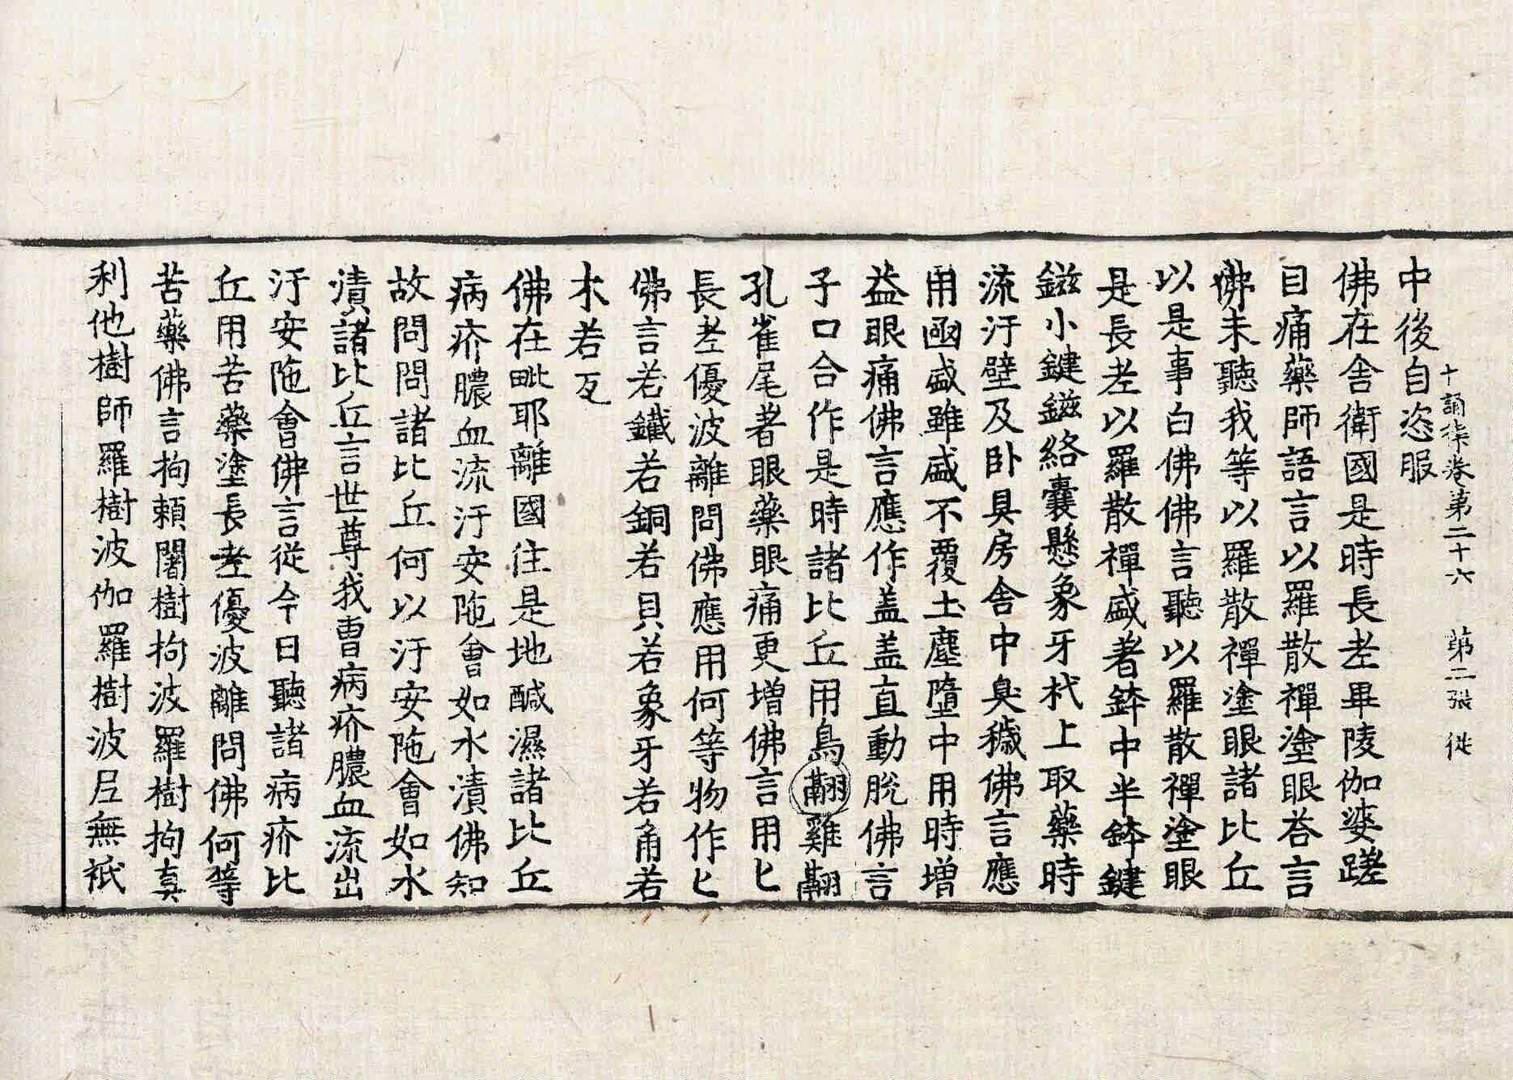 中後自恣服
十誦律卷第二十六 第二張 從
佛在舍衛國是時長老畢陵伽婆蹉
目痛藥師語言以羅散禪塗眼荅言
佛未聽我等以羅散禪塗眼諸比丘
以是事白佛佛言聽以羅散禪塗眼
是長老以羅散禪盛著鉢中半鉢鍵
鎡小鍵鎡絡囊懸象牙杙上取藥時
流汙壁及卧具房舍中臭穢佛言應
用凾盛雖盛不覆土塵墮中用時增
益眼痛佛言應作盖盖直動脫佛言
子口合作是時諸比丘用鳥翮雞翮
孔雀尾著眼藥眼痛更增佛言用匕
長老優波離問佛應用何等物作匕
佛言若鐵若銅若貝若象牙若角若
木若瓦
佛在毗耶離國住是地醎濕諸比丘
病疥膿血流汙安陁會如水漬佛知
故問問諸比丘何以汙安陁會如水
漬諸比丘言世尊我曹病疥膿血流出
汙安陁會佛言從今日聽諸病疥比
丘用苦藥塗長老優波離問佛何等
苦藥佛言拘賴闍樹拘波羅樹拘真
利他樹師羅樹波伽羅樹波尼無祇